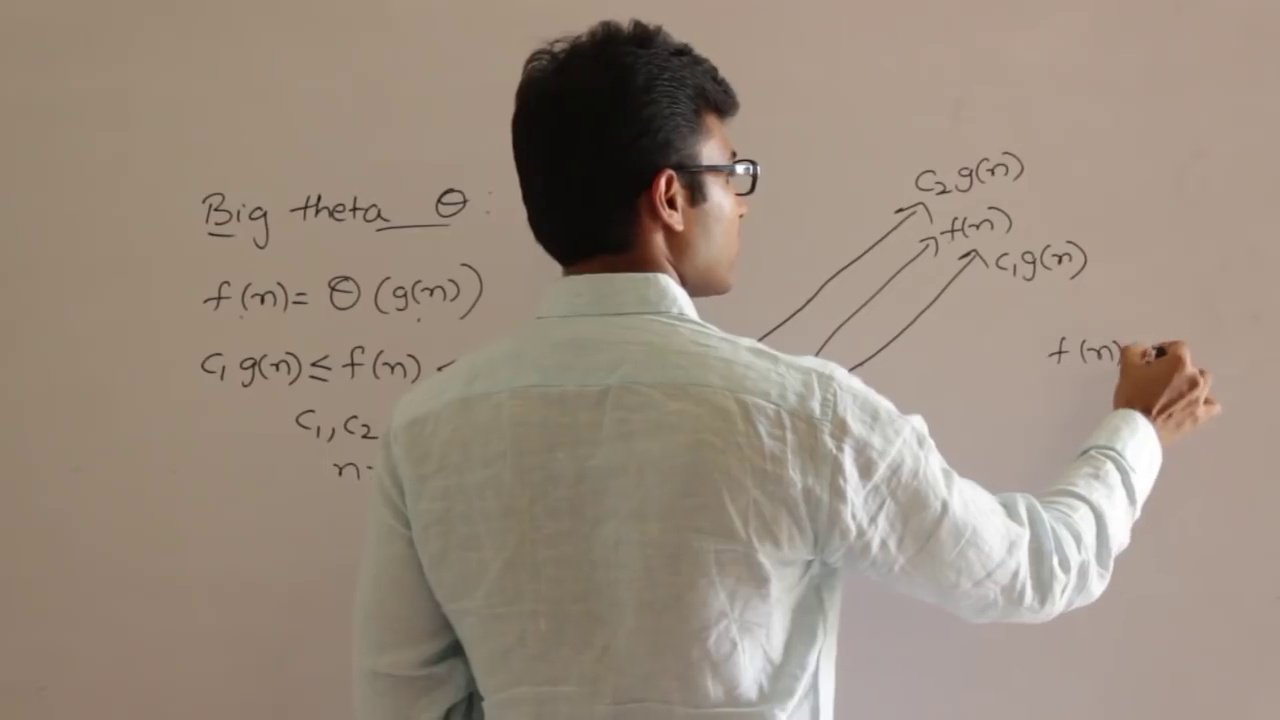 Big theta θ :
f(n) = θ (g(n))
c₁ g(n) ≤ f(n)
c₁, c₂
n
c₂ g(n)
f(n)
c₁ g(n)
f(n)